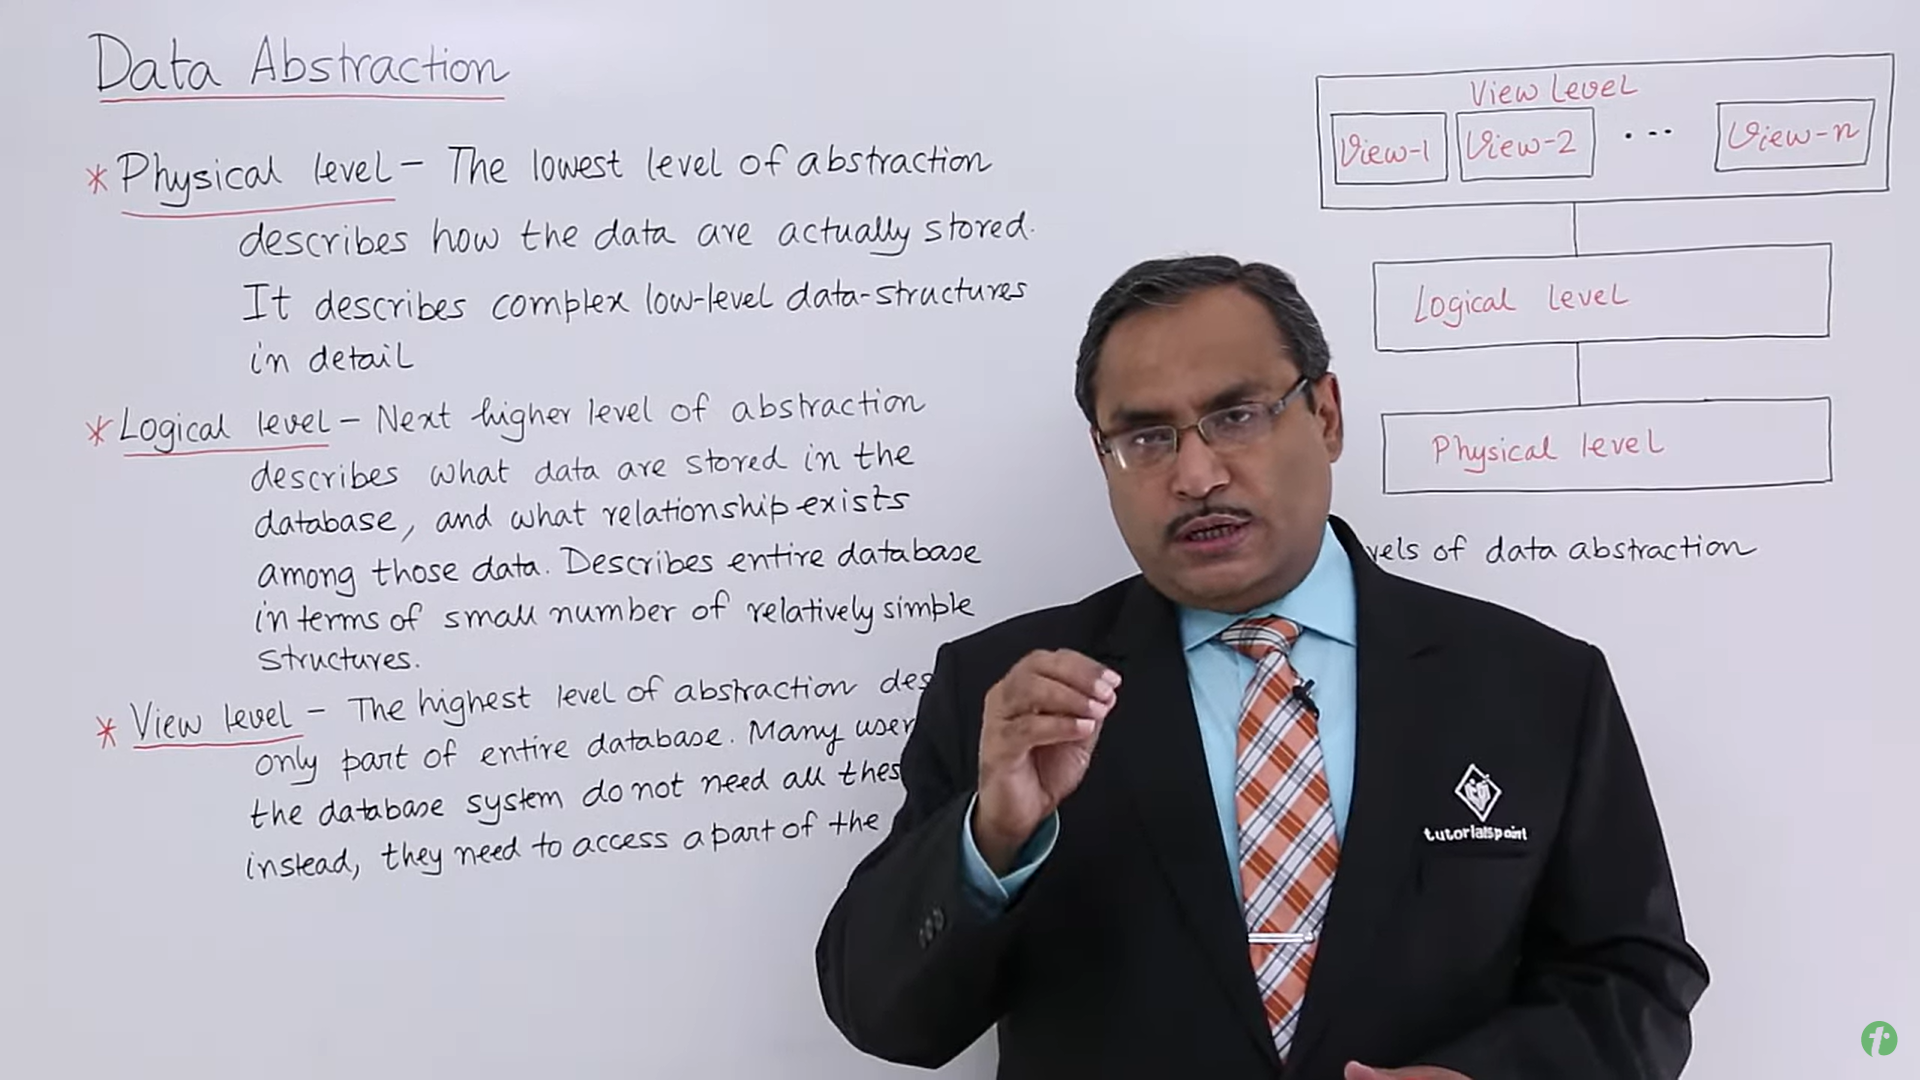 Data Abstraction
* Physical level - The lowest level of abstraction
describes how the data are actually stored.
It describes complex low-level data-structures
in detail
* Logical level - Next higher level of abstraction
describes what data are stored in the
database, and what relationship exists
among those data. Describes entire database
in terms of small number of relatively simple
structures.
* View level - The highest level of abstraction des
only part of entire database. Many user
the database system do not need all thes
instead, they need to access a part of the
View Level
View-1 View-2 ... View-n
Logical level
Physical level
vels of data abstraction
tutorialspoint